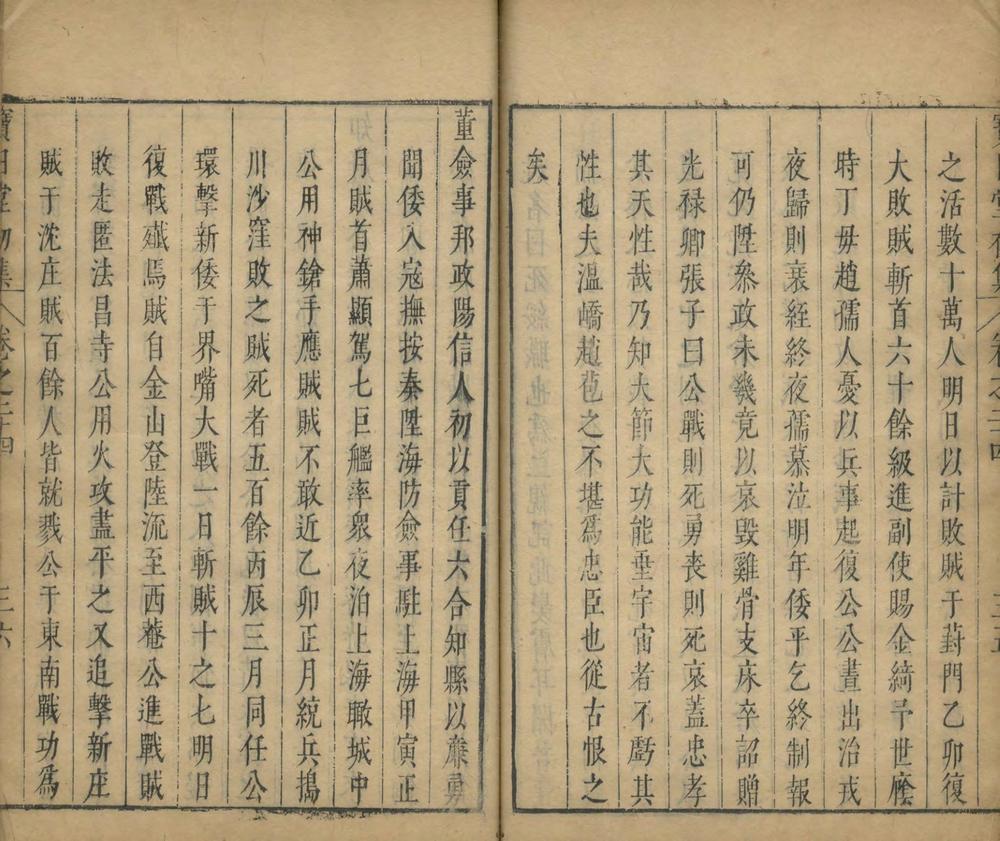 之活數十萬人明日以計敗賊于葑門乙卯復
大敗賊斬首六十餘級進副使賜金綺予世廕
時丁毋趙孺人憂以兵事起復公公晝出治戎
夜歸則衰絰終夜孺慕泣明年倭平乞終制報
可仍陞叅政未幾竟以哀毀雞骨支床卒詔贈
光禄卿張子曰公戰則死勇丧則死哀蓋忠孝
其天性哉乃知大節大功能垂宇宙者不虧其
性也夫溫嶠趙苞之不堪爲忠臣也從古恨之
矣
董僉事邦政陽信人初以貢任六合知縣以亷勇
聞倭入寇撫按奏陞海防僉事駐上海甲寅正
月賊首蕭顯駕七巨艦率衆夜泊上海瞰城中
公用神鎗手應賊賊不敢近乙卯正月統兵搗
川沙窪敗之賊死者五百餘丙辰三月同任公
環擊新倭于界嘴大戰一日斬賊十之七明日
復戰殲焉賊自金山登陸流至西菴公進戰賊
敗走匿法昌寺公用火攻盡平之又追擊新庄
賊于沈庄賊百餘人皆就戮公于東南戰功爲
寶日堂初集 卷之二十四 三六